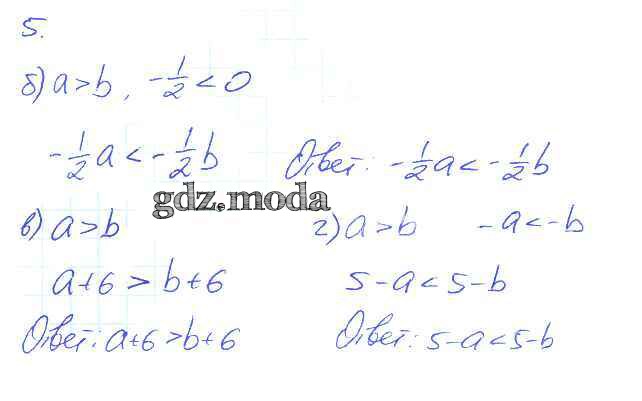 5.
б) a > b, -1/2 < 0
-1/2 a < -1/2 b Ответ: -1/2 a < -1/2 b
gdz.moda
в) a > b г) a > b -a < -b
a+6 > b+6 5-a < 5-b
Ответ: a+6 > b+6 Ответ: 5-a < 5-b